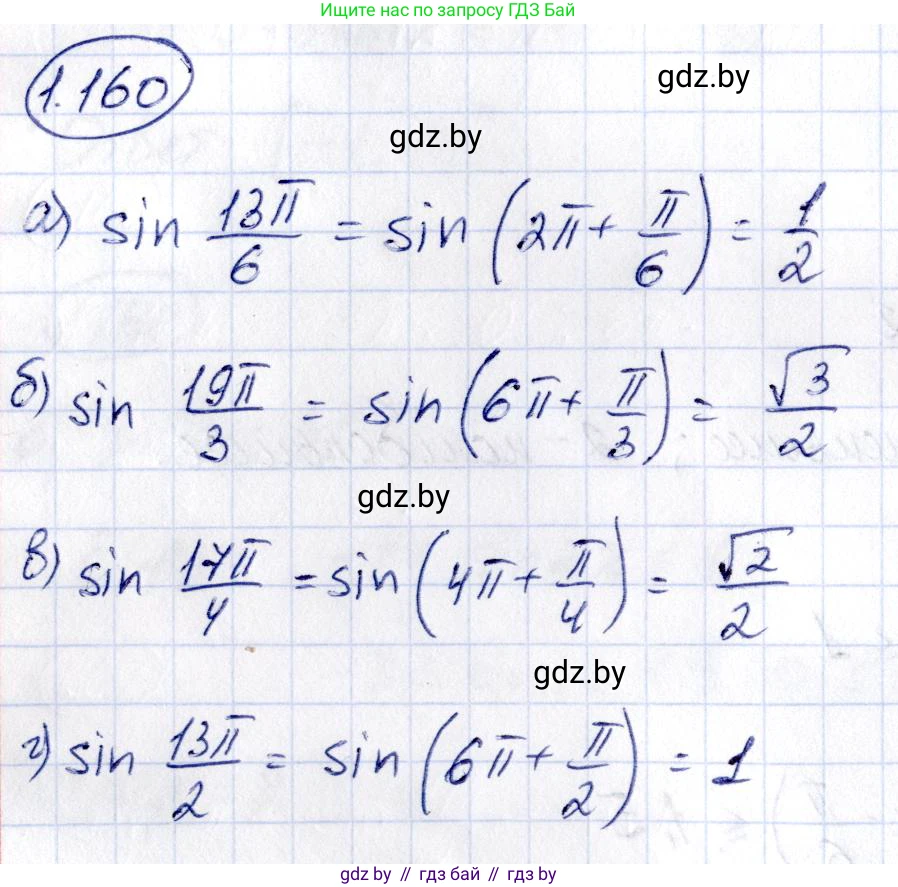 Ищите нас по запросу ГДЗ Бай
1.160
gdz.by
gdz.by
а) sin 13π/6 = sin (2π + π/6) = 1/2
б) sin 19π/3 = sin (6π + π/3) = √3/2
gdz.by
в) sin 17π/4 = sin (4π + π/4) = √2/2
gdz.by
г) sin 13π/2 = sin (6π + π/2) = 1
gdz.by // гдз бай // gdz.by